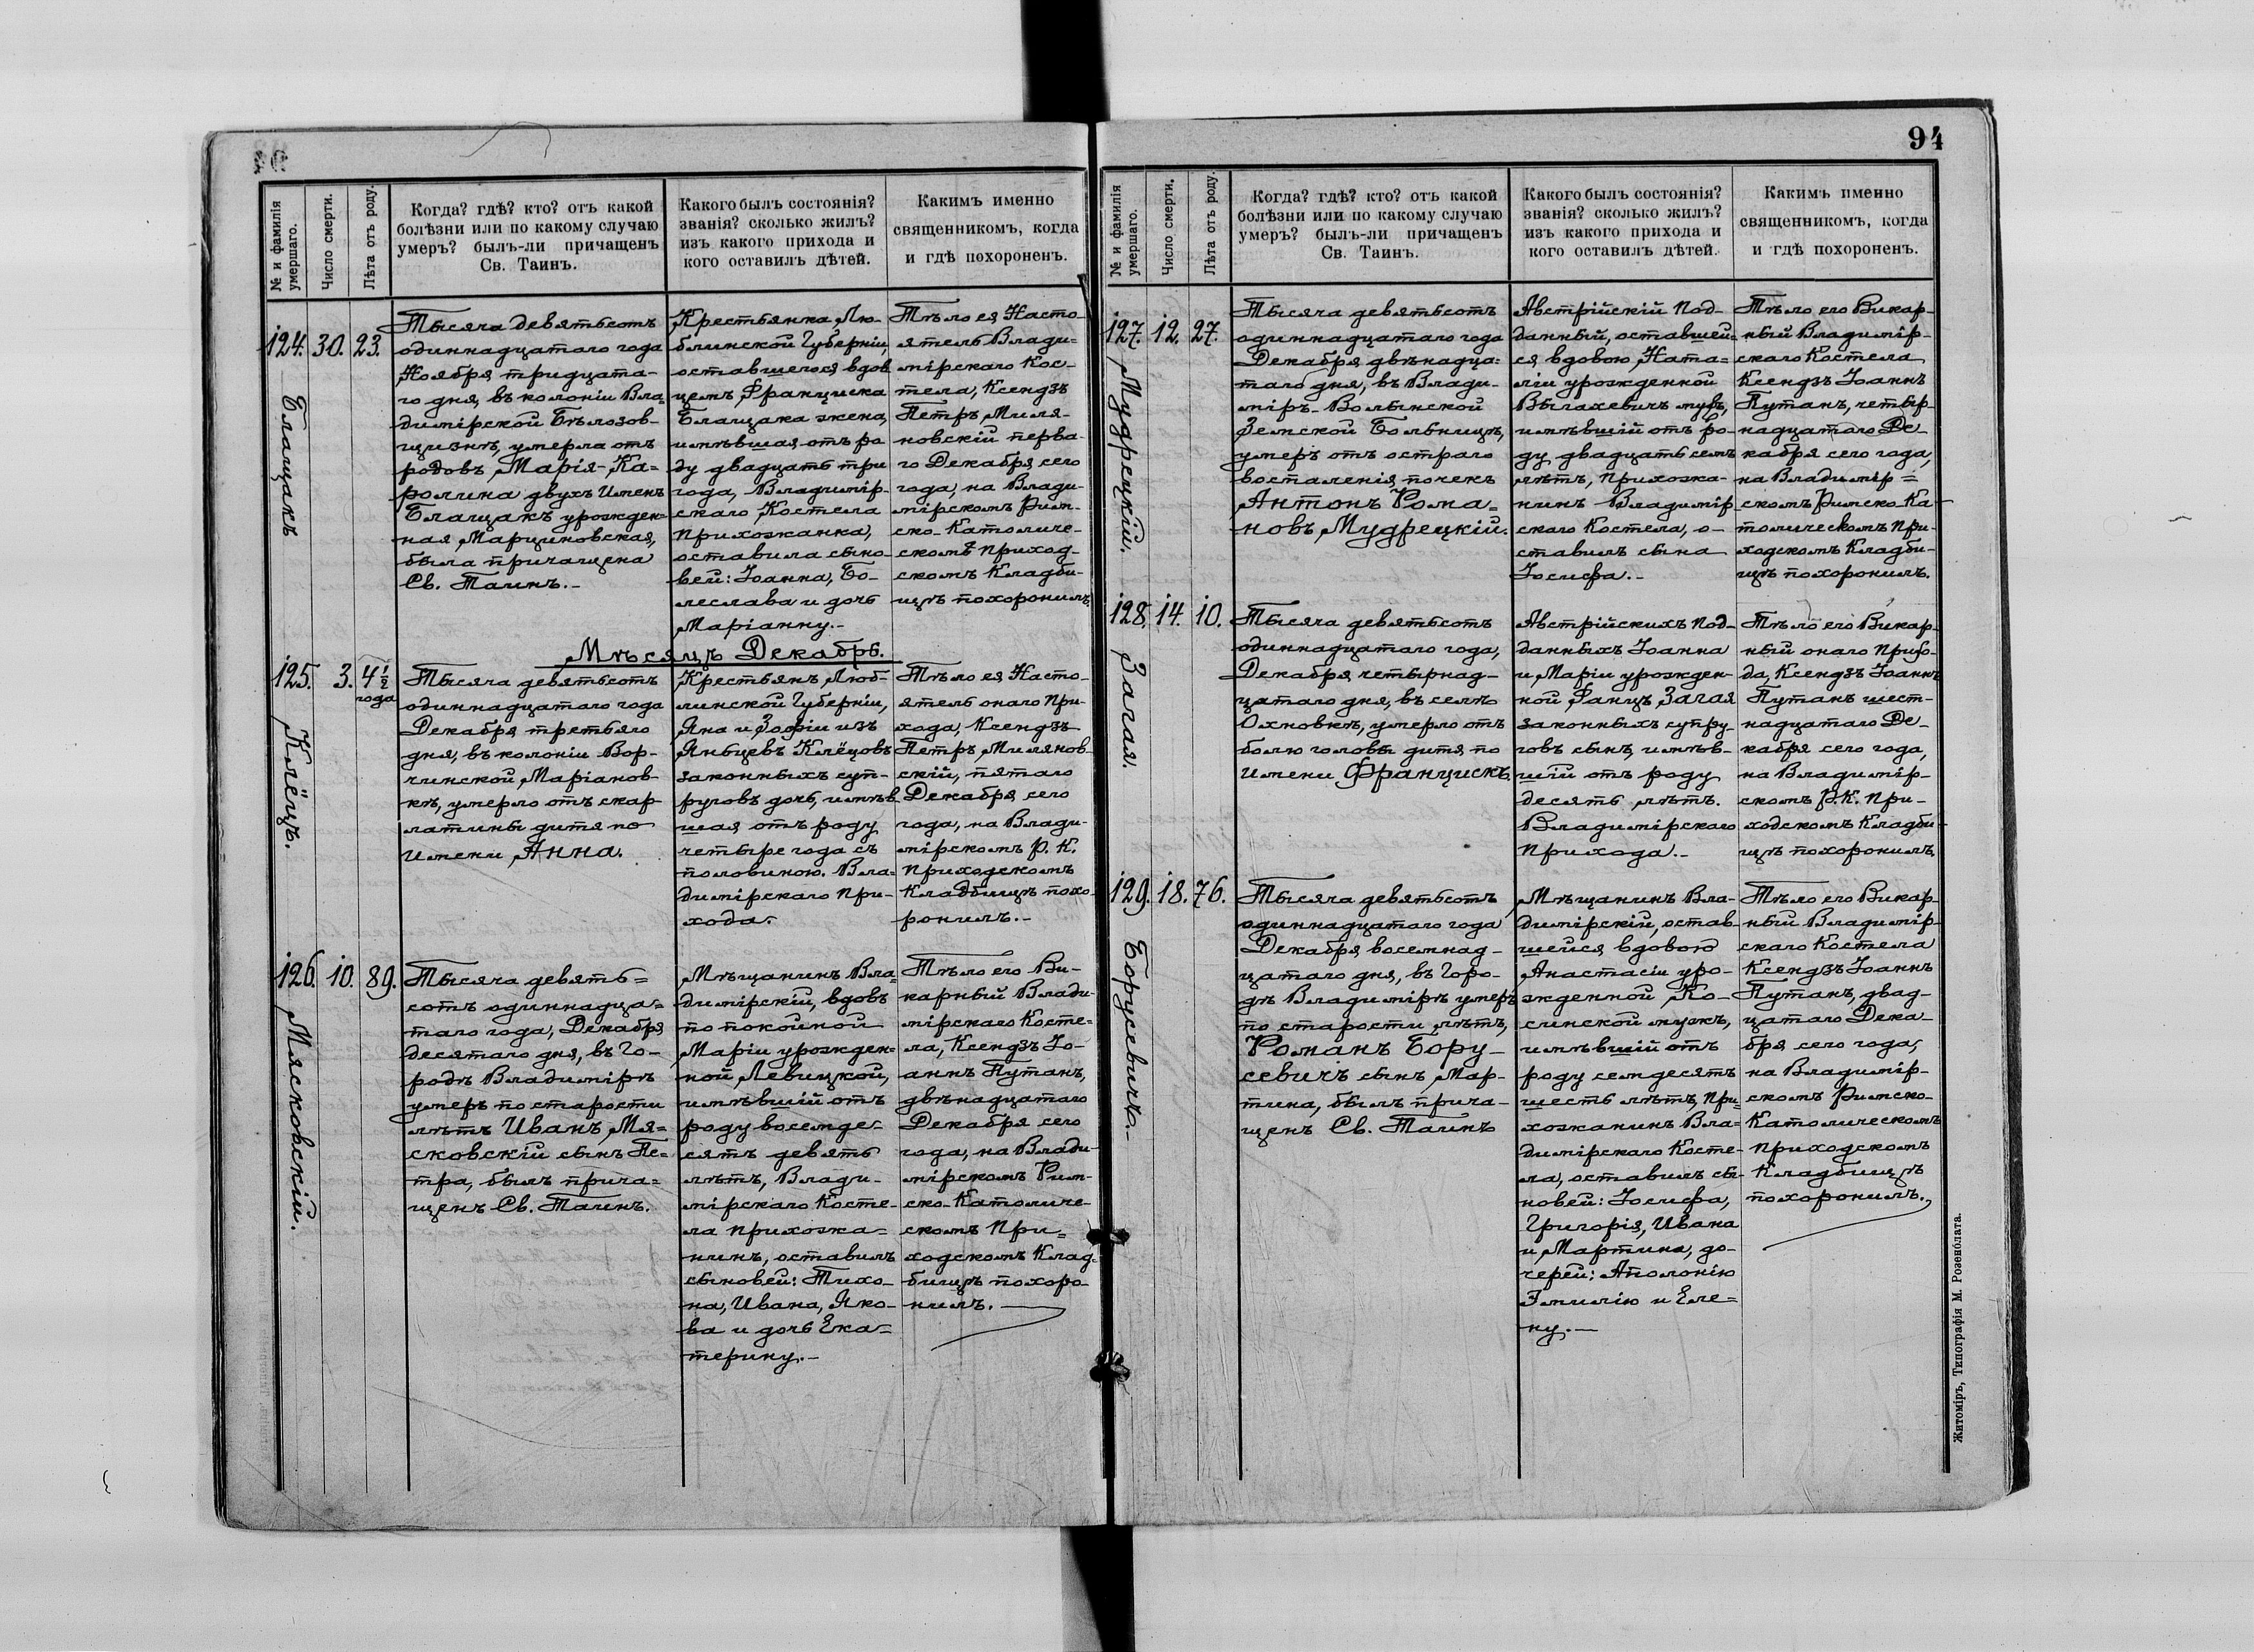 94
№ и фамилія
умершаго.
Число смерти.
Лѣта отъ роду.
Когда? гдѣ? кто? отъ какой
болѣзни или по какому случаю
умеръ? былъ-ли причащенъ
Св. Таинъ.
Какого былъ состоянія?
званія? сколько жилъ?
изъ какого прихода и
кого оставилъ дѣтей.
Какимъ именно
священникомъ, когда
и гдѣ похороненъ.
124.
Блащакъ
30.
23.
Тысяча девятьсотъ
одиннадцатаго года
Ноября тридцата-
го дня, въ колоніи Вла-
димірской Бѣлозов-
щизнѣ, умерла отъ
родовъ, Марія-Ка=
ролина двухъ именъ
Блащакъ урожден-
ная Марциновская,
была причащена
Св. Таинъ.-
Крестьянка, Лю-
блинской Губерніи,
оставшегося вдов
цемъ, Франциска
Блащака жена,
имѣвшая отъ ро
ду двадцать три
года, Владимір-
скаго Костела
прихожанка,
оставила сыно-
вей: Іоанна, Бо-
леслава и дочь
Маріанну.-
Тѣло ея Насто-
ятель Влади=
мірскаго Кос-
тела, Ксендзъ
Петръ Миля-
новскій перва-
го Декабря сего
года, на Влади-
мірскомъ Рим-
ско-Католиче-
скомъ приход-
скомъ Кладби-
щѣ похоронилъ.
Мѣсяцъ Декабрь.
125.
Клёцъ.
3.
4½
года
Тысяча девятьсотъ
одиннадцатаго года
Декабря третьяго
дня, въ колоніи Вор-
чинской Маріанов-
кѣ, умерло отъ скар-
латины дитя по
имени Анна.
Крестьянъ, Люб-
линской Губерніи,
Яна и Зофіи изъ
Яньцевъ Клёцовъ
законныхъ суп-
руговъ дочь, имѣв
шая отъ роду
четыре года съ
половиною. Вла=
димірскаго при-
хода.
Тѣло ея Насто-
ятель онаго при-
хода, Ксендзъ
Петръ Милянов-
скій, пятаго
Декабря сего
года, на Влади-
мірскомъ Р. К.
приходскомъ
Кладбищѣ похо-
ронилъ.-
126.
Мясковскій.
10.
89.
Тысяча девять=
сотъ одиннадца=
таго года, Декабря
десятаго дня, въ го-
родѣ Владимірѣ
умеръ по старости
лѣтъ Иванъ Мя=
сковскій сынъ Пе=
тра, былъ прича=
щенъ Св. Таинъ.
Мѣщанинъ Вла=
димірскій, вдовъ
по покойной
Маріи урожден=
ной Левицкой,
имѣвшій отъ
роду восемде-
сятъ девять
лѣтъ, Влади-
мірскаго Косте-
ла прихожа=
нинъ, оставилъ
сыновей: Тихо-
на, Ивана, Яко-
ва и дочь Ека=
терину.-
Тѣло его Ви-
карный Влади-
мірскаго Косте=
ла, Ксендзъ Іо-
аннъ Путанъ,
двѣнадцатаго
Декабря сего
года, на Влади-
мірскомъ Рим-
ско-Католиче-
скомъ при=
ходскомъ Клад=
бищѣ похоро-
нилъ.
№ и фамилія
умершаго.
Число смерти.
Лѣта отъ роду.
Когда? гдѣ? кто? отъ какой
болѣзни или по какому случаю
умеръ? былъ-ли причащенъ
Св. Таинъ.
Какого былъ состоянія?
званія? сколько жилъ?
изъ какого прихода и
кого оставилъ дѣтей.
Какимъ именно
священникомъ, когда
и гдѣ похороненъ.
127.
Мудрецкій.
12.
27.
Тысяча девятьсотъ
одиннадцатаго года
Декабря двѣнадца=
таго дня, въ Влади-
міръ-Волынской
Земской Больницѣ,
умеръ отъ остраго
воспаленія почекъ
Антонъ Рома=
новъ Мудрецкій.
Австрійскій под-
данный, оставшей=
ся вдовою, Ната=
ліи урожденной
мужъ,
имѣвшій отъ ро-
ду двадцать семь
лѣтъ, прихожа-
нинъ Владимір
скаго Костела, о-
ставилъ сына
Іосифа.-
Тѣло его Викар-
ный Владимір-
скаго Костела
Ксендзъ Іоаннъ
Путанъ, четыр-
надцатаго Де-
кабря сего года,
на Владимір=
скомъ Римско-Ка-
толическомъ при-
ходскомъ Кладби-
щѣ похоронилъ.
128.
Загая.
14.
10.
Тысяча девятьсотъ
одиннадцатаго года,
Декабря четырнад-
цатаго дня, въ селѣ
Охновкѣ, умерло отъ
болю головы дитя по
имени Францискъ.
Австрійскихъ под-
данныхъ Іоанна
и Маріи урожден-
ной Фанцъ Загая
законныхъ супру-
говъ сынъ, имѣв-
шій отъ роду
десять лѣтъ.
Владимірскаго
прихода.-
Тѣло его Викар-
ный онаго прихо-
да, Ксендзъ Іоаннъ
Путанъ шест-
надцатаго Де-
кабря сего года,
на Владимір-
скомъ Р.К. при-
ходскомъ Кладби-
щѣ похоронилъ.
129.
Борусевичъ.-
18.
76.
Тысяча девятьсотъ
одиннадцатаго года
Декабря восемнад-
цатаго дня, въ горо-
дѣ Владимірѣ умеръ
по старости лѣтъ,
Романъ Бору-
севичъ сынъ Мар-
тина, былъ прича-
щенъ Св. Таинъ
Мѣщанинъ Вла-
димірскій, остав-
шейся вдовою
Анастасіи уро-
жденной Ко-
синской мужъ,
имѣвшій отъ
роду семдесятъ
шесть лѣтъ, при=
хожанинъ Вла=
димірскаго Косте-
ла, оставилъ сы-
новей: Іосифа,
Григорія, Ивана
и Мартина, до-
черей: Аполонію
Эмилію и Еле=
ну.-
Тѣло его Викар-
ный Владимір-
скаго Костела
Ксендзъ Іоаннъ
Путанъ, двад-
цатаго Дека-
бря сего года,
на Владимір-
скомъ Римско-
Католическомъ
приходскомъ
Кладбищѣ
похоронилъ.
Житоміръ, Типографія М. Розенблата.